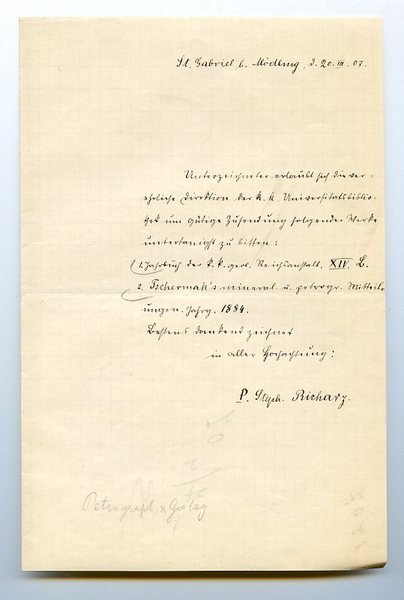 St. Gabriel b. Mödling, d. 20. III. 07.
Unterzeichneter erlaubt sich die ver-
ehrliche Direktion der k. k. Universitätsbiblio-
thek um gütige Zusendung folgender Werke
untertänigst zu bitten:
1. Jahrbuch der k. k. geol. Reichsanstalt, XIV. B.
2. Tschermak's mineral. u. petrogr. Mitteil-
ungen. Jahrg. 1884.
Bestens dankend zeichnet
in aller Hochachtung:
P. Steph. Richarz.
Petrograph & Geolog